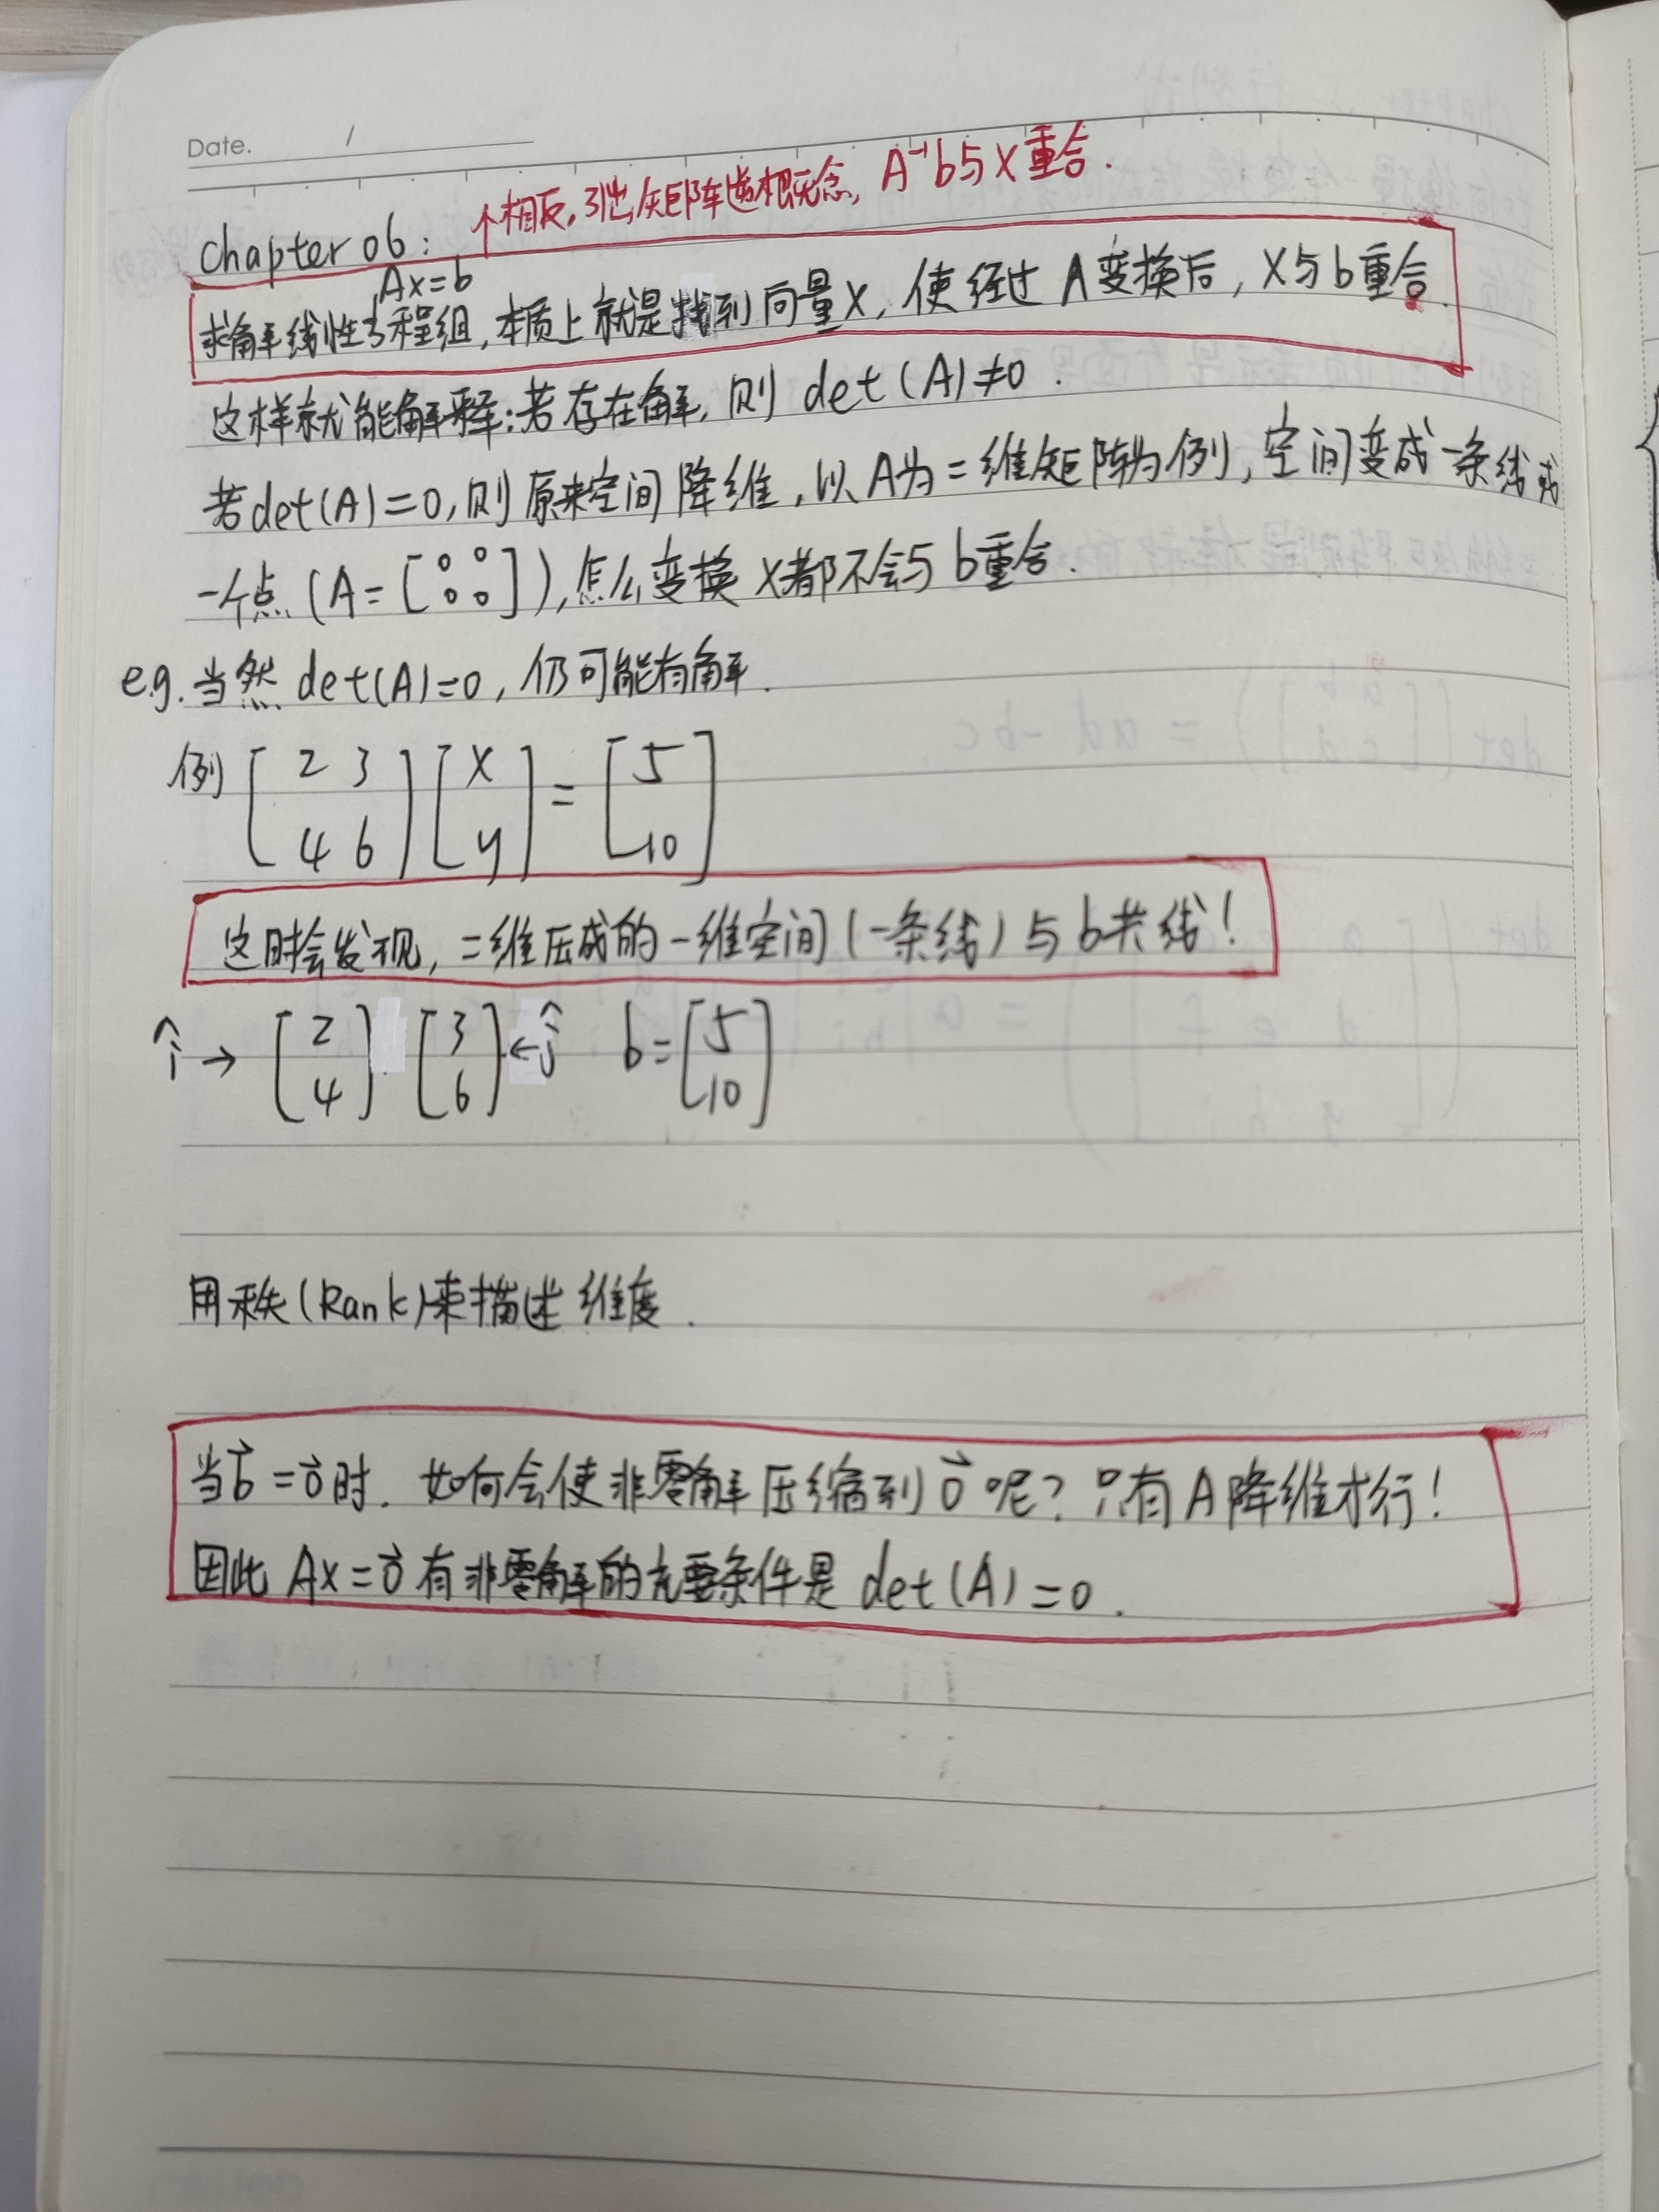 Date. /
↑相反,引出矩阵逆概念, A⁻¹b与x重合.
chapter 06:
Ax=b
求解线性方程组,本质上就是找到向量x,使经过A变换后,x与b重合.
这样就能解释:若存在解,则 det(A)≠0.
若det(A)=0,则原来空间降维,以A为二维矩阵为例,空间变成一条线或
一个点(A=[0 0 0 0]),怎么变换x都不会与b重合.
e.g.当然 det(A)=0,仍可能有解.
例 [2 3 [x = [5
4 6] y] 10]
这时会发现,二维压成的一维空间(一条线)与b共线!
î→ [2 [3 ←ĵ b=[5
4] 6] 10]
用秩(Rank)来描述维度.
当b⃗=0⃗时.如何会使非零解压缩到0⃗呢?只有A降维才行!
因此 Ax=0⃗有非零解的充要条件是 det(A)=0.